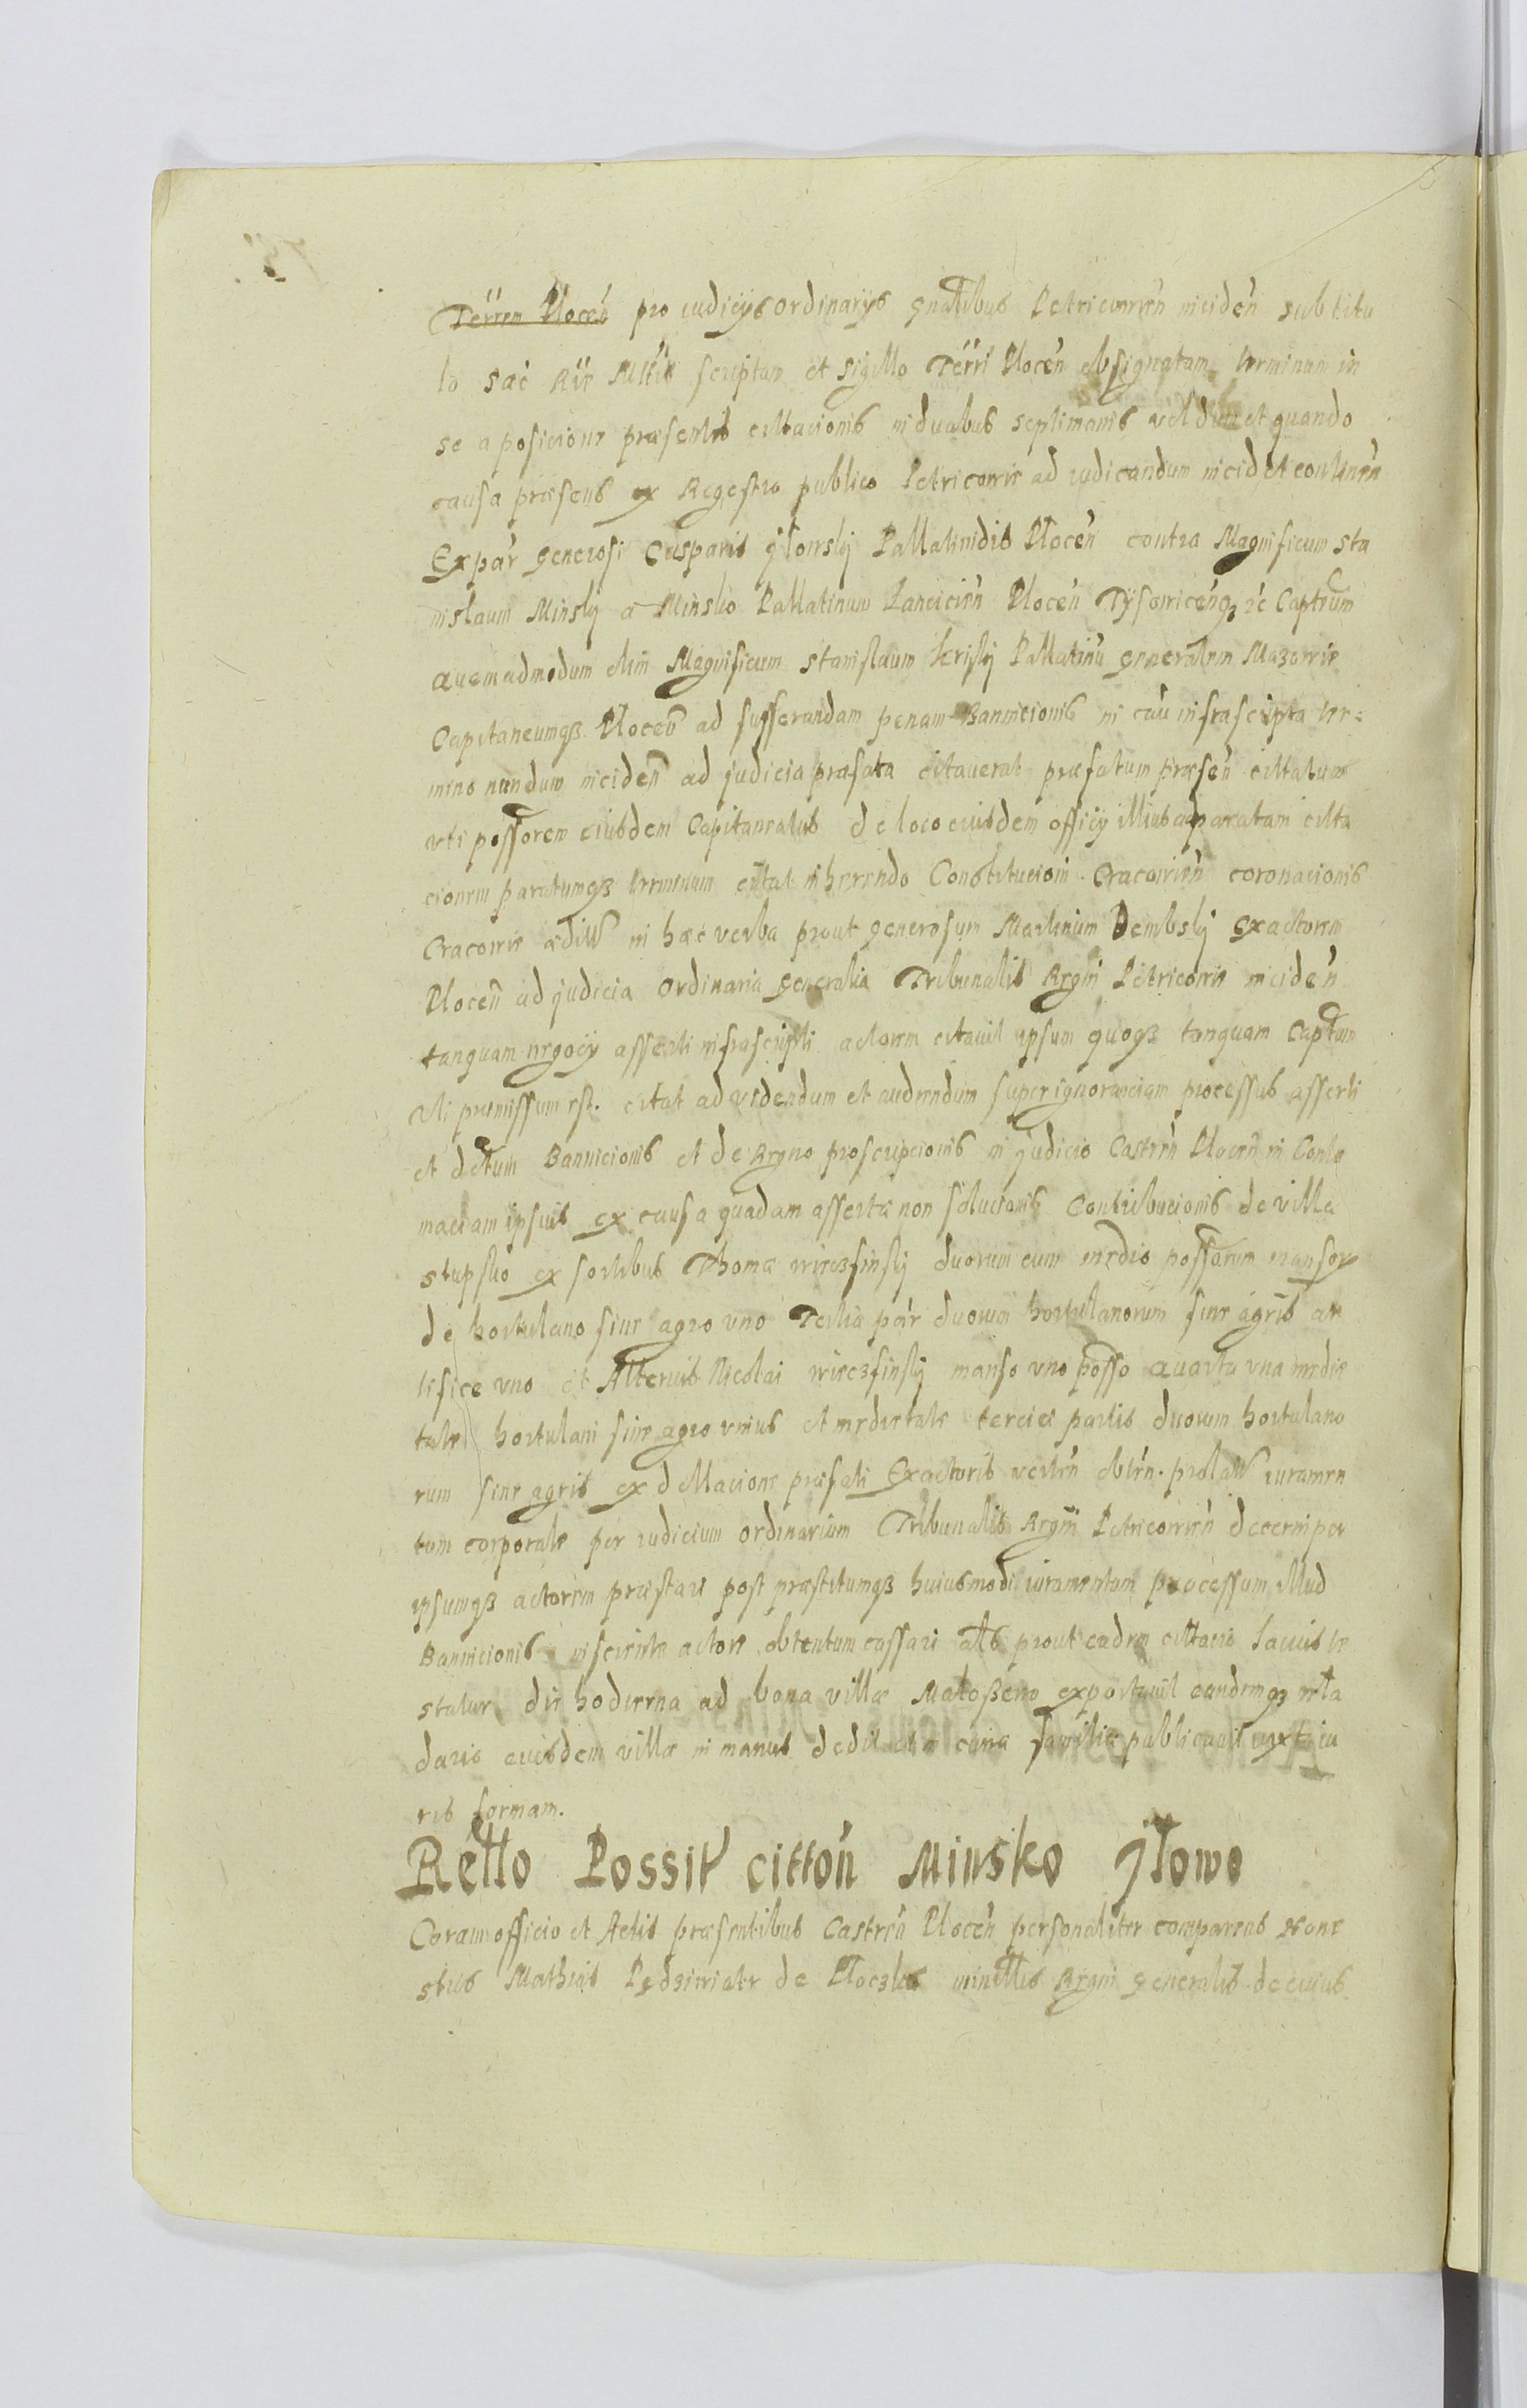 Terrem Plocen pro iudicijs ordinarijs gnalibus Petricovien inciden sub titu
lo sac Rie Mtis scriptam et sigillo Terri Plocen obsignatam terminum in
se a posicione præsentis cittacionis in duabus septimanis vel dum et quando
causa præsens ex Regestro publico Petricovie ad iudicandum incidet continen
Ex par generosi Casparis Pallatinidis Plocen contra Magnificum sta
nislaum Minskij a Minsko Pallatinum Lancicien Plocen ꝛc Captrum
quemadmodum olim Magnificum stanislaum kriskij Pallatinu generalem Mazovie
Capitaneumqȝ Plocen ad sufferandam penam Bannicionis in cau infrascripta ter-
mino nundum inciden ad judicia præfata citaverat præfatum præsen cittatum
uti possorem eiusdem Capitaneatus de loco eiusdem officij illius ad paratam citta
cionem paratumqȝ terminum cittat inherendo Constitucioni Cracovien coronacionis
Cracovie in hæc verba prout generosum Martinum Dembskij Exactorem
Plocen ad judicia ordinaria generalia Tribunalis Regni Petricovie inciden
tanquam negocij asserti infrascripti actorem citavit ipsum quoqȝ tanquam Captum
Uti præmissum est. citat ad videndum et audiendum super ignoranciam processus asserti
et Bannicionis et de Regno proscripcionis in judicio Castren Plocen in Contu
maciam ipsius ex causa quadam asserta non solucionis Contribucionis de villa
stupsko ex sortibus Thomæ duorum cum medio possorum mansor
de hortulano sine agro uno Tertia par duorum hortulanorum sine agris ar
tifice uno et Alterius Nicolai manso uno posso quarta una medie
tate hortulani sine agro unius et medietate terciæ partis duorum hortulano
rum sine agris ex dellacione præfati Exactoris obten. iuramen
tum corporale per iudicium ordinarium Tribunalis Regni Petricovien decerni per
ipsumqȝ actorem præstari post præstitumqȝ huiusmodi iuramentum processum illud
Bannicionis actore obtentum cassari als prout eadem cittacio lacius te
statur die hodierna ad bona villæ exportavit eandemqȝ
dario eiusdem villæ in manus dedit familiæ publicavit iuxta iu
ris formam.
Retto Possit citton Minsko Jłowo
Coram officio et Actis præsentibus Castren Plocen personaliter comparens Hone
stus Mathias de Ploczko Regni generalis de cuius